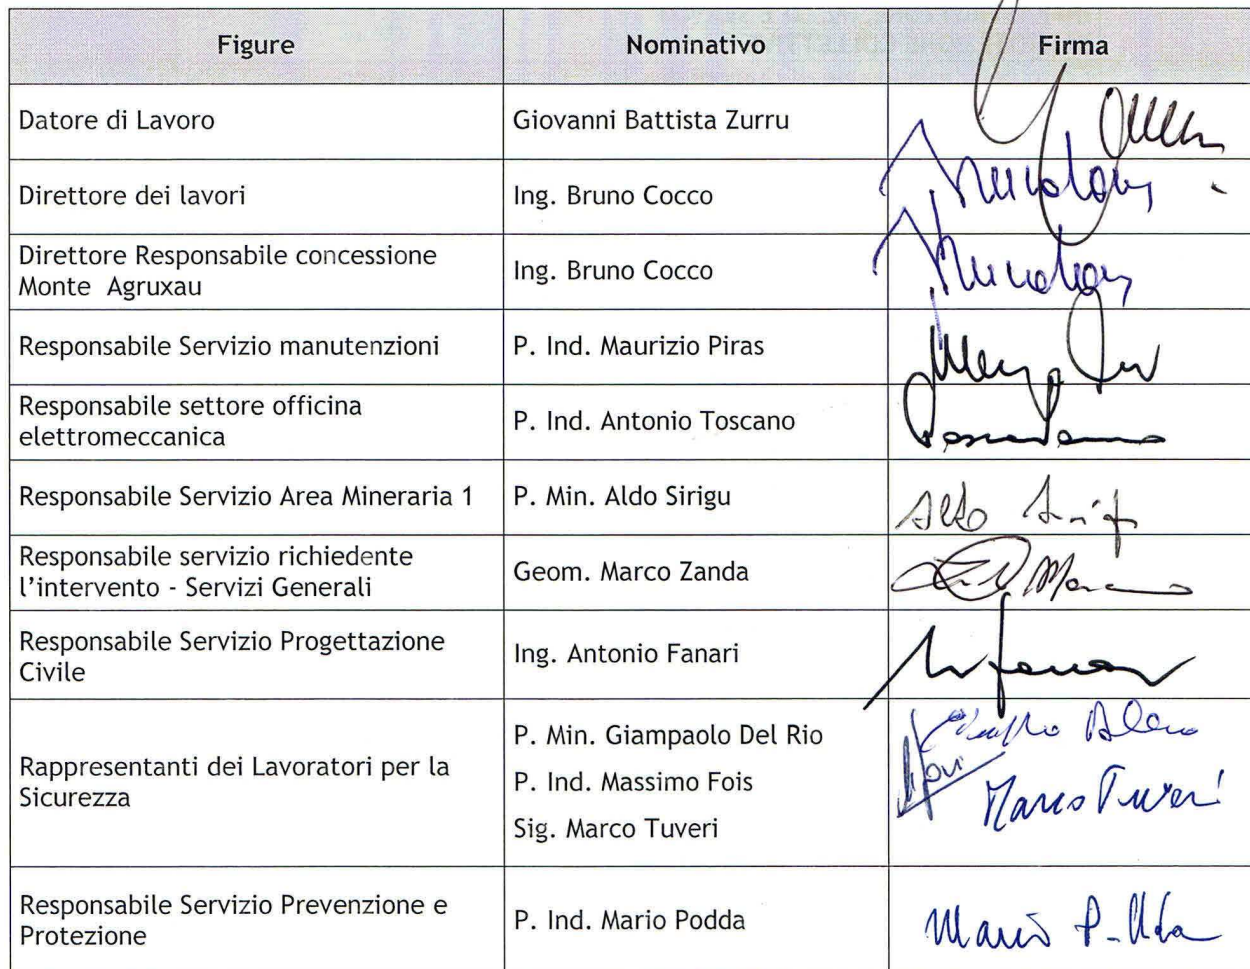 Figure
Nominativo
Firma
Datore di Lavoro
Giovanni Battista Zurru
Direttore dei lavori
Ing. Bruno Cocco
Direttore Responsabile concessione
Monte Agruxau
Ing. Bruno Cocco
Responsabile Servizio manutenzioni
P. Ind. Maurizio Piras
Responsabile settore officina
elettromeccanica
P. Ind. Antonio Toscano
Responsabile Servizio Area Mineraria 1
P. Min. Aldo Sirigu
Responsabile servizio richiedente
l'intervento - Servizi Generali
Geom. Marco Zanda
Responsabile Servizio Progettazione
Civile
Ing. Antonio Fanari
Rappresentanti dei Lavoratori per la
Sicurezza
P. Min. Giampaolo Del Rio
P. Ind. Massimo Fois
Sig. Marco Tuveri
Marco Tuveri
Responsabile Servizio Prevenzione e
Protezione
P. Ind. Mario Podda